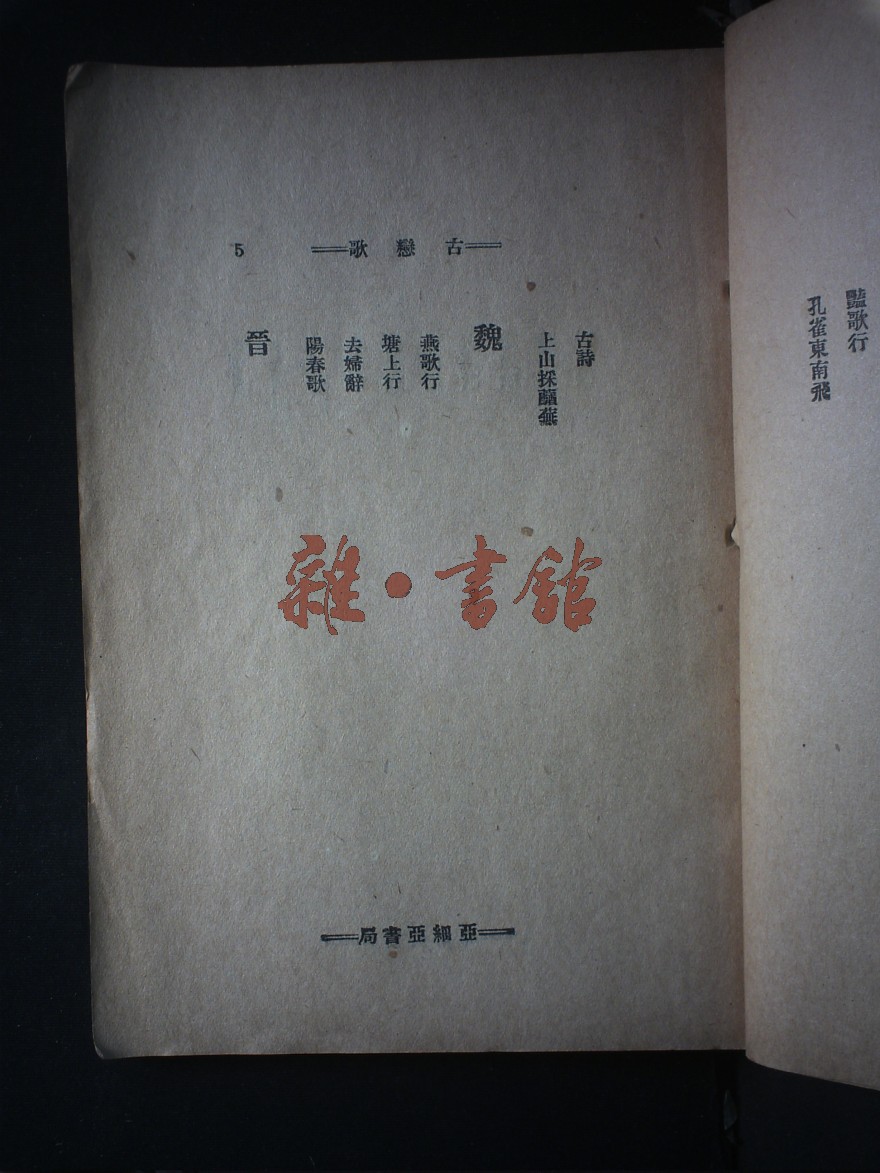 豔歌行
孔雀東南飛
古戀歌
5
古詩
上山採蘼蕪
魏
燕歌行
塘上行
去婦辭
陽春歌
晉
雜·書館
亞細亞書局